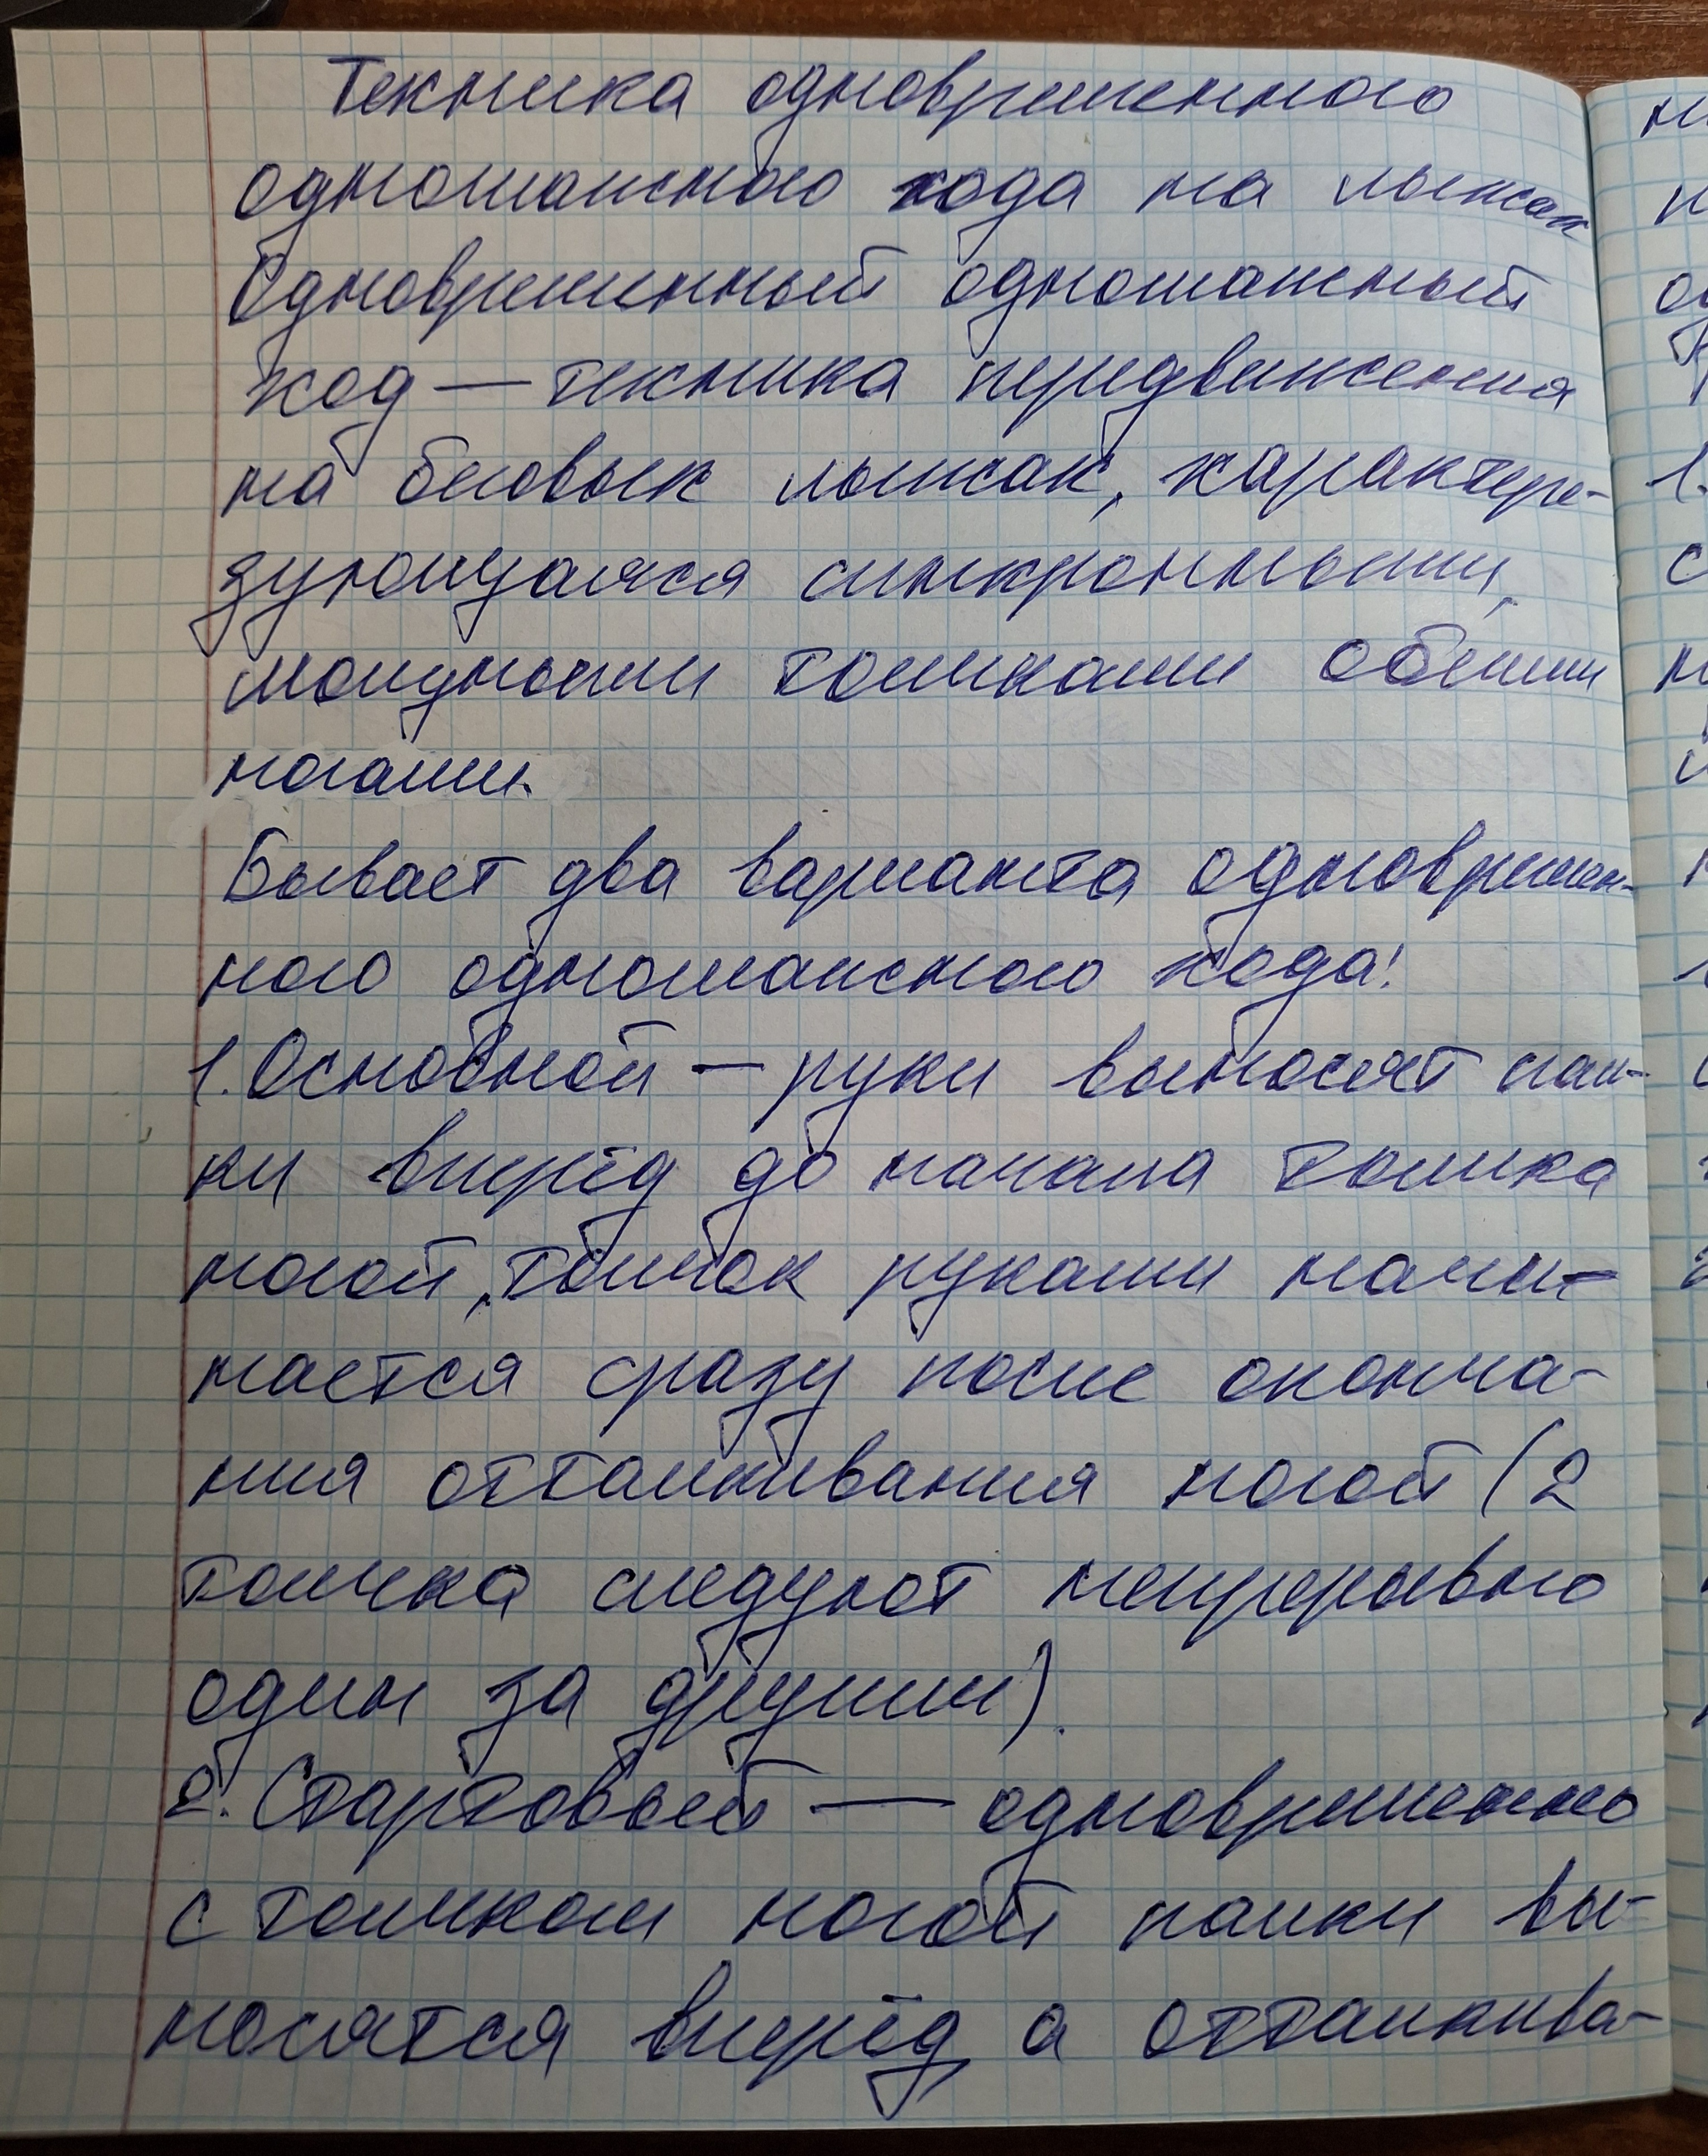 Техника одновременного
одношажного хода на лыжах
Одновременный одношажный
ход — техника передвижения
на беговых лыжах, характере-
зующаяся синхронными,
мощными толчками обеими
ногами.
Бывает два варианта одновремен-
ного одношажного хода:
1. Основной — руки выносят пал-
ки вперёд до начала толчка
ногой, толчок руками начи-
нается сразу после оконча-
ния отталкивания ногой (2
толчка следуют непрерывно
один за другим).
2. Стартовый — одновременно
с толчком ногой палки вы-
носятся вперёд, а отталкива-